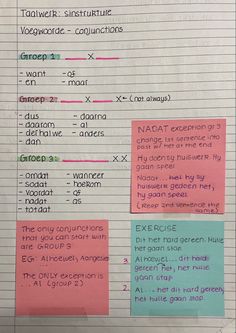 Taalwerk: sinstruktuure
Voegwoorde - conjunctions
Groep 1 ___ X ___
- want - of
- en - maar
Groep 2 ___ X ← (not always)
- dus - daarna
- daarom - al
- derhalwe - anders
- dan
Groep 3 ___ X X
- omdat - wanneer
- sodat - hoekom
- voordat - of
- nadat - as
- totdat
NADAT exception gr 3
change 1st sentence into
past w/ het at the end
Hy doen sy huiswerk. Hy
gaan speel
Nadat ... het hy sy
huiswerk gedoen het,
hy gaan speel.
(Keep 2nd sentence the
same)
The only conjunctions
that you can start with
are GROUP 3
EG: Alhoewel, Aangesien
The ONLY exception is
... Al (group 2)
EXERCISE
Dit het hard gereën. Hulle
het gaan stap.
3. Alhoewel ... dit hard
gereën het, het hulle
gaan stap.
2. Al ... het dit hard gereën,
het hulle gaan stap.